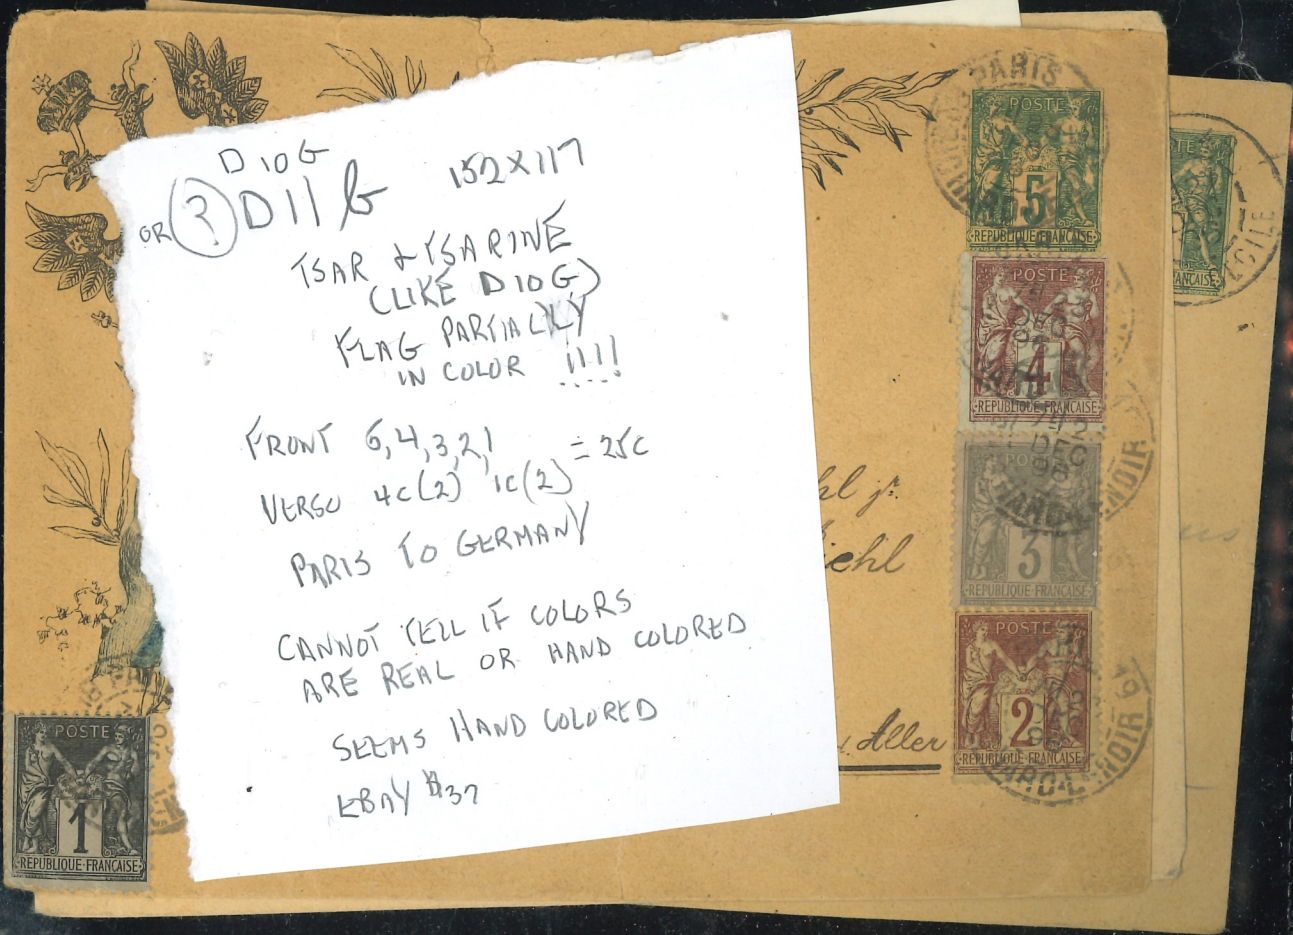 D10G
OR ? D11 G 152 X 117
TSAR & TSARINE
(LIKE D10G)
FLAG PARTIALLY
IN COLOR !!!!
FRONT 5,4,3,2,1
VERSO 4C(2) 1C(2) = 25C
PARIS TO GERMANY
CANNOT TELL IF COLORS
ARE REAL OR HAND COLORED
SEEMS HAND COLORED
EBAY $37
PARIS
POSTE
5
REPUBLIQUE FRANÇAISE
POSTE
4
REPUBLIQUE FRANÇAISE
DEC
3
REPUBLIQUE FRANÇAISE
POSTE
2
REPUBLIQUE FRANÇAISE
POSTE
1
REPUBLIQUE FRANÇAISE
hl jr.
iehl
Aller